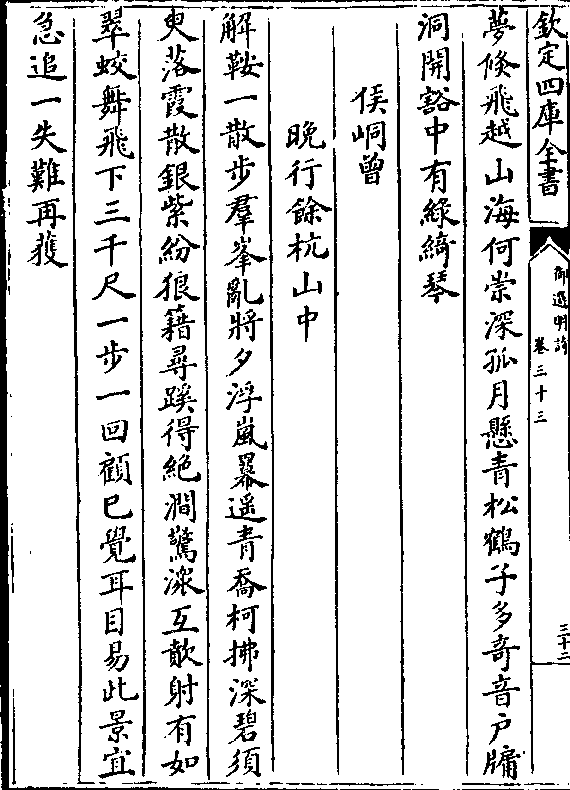 欽定四庫全書
御選明詩
卷三十三
三十二
夢倐飛越山海何崇深孤月懸青松鶴子多竒音户牖
洞開豁中有緑綺琴
侯峒曾
晚行餘杭山中
解鞍一散步羣峯亂將夕浮嵐羃遥青喬柯拂深碧須
臾落霞散銀紫紛狼籍尋蹊得絶澗驚濴互歕射有如
翠蛟舞飛下三千尺一步一回顧已覺耳目易此景宜
急追一失難再獲